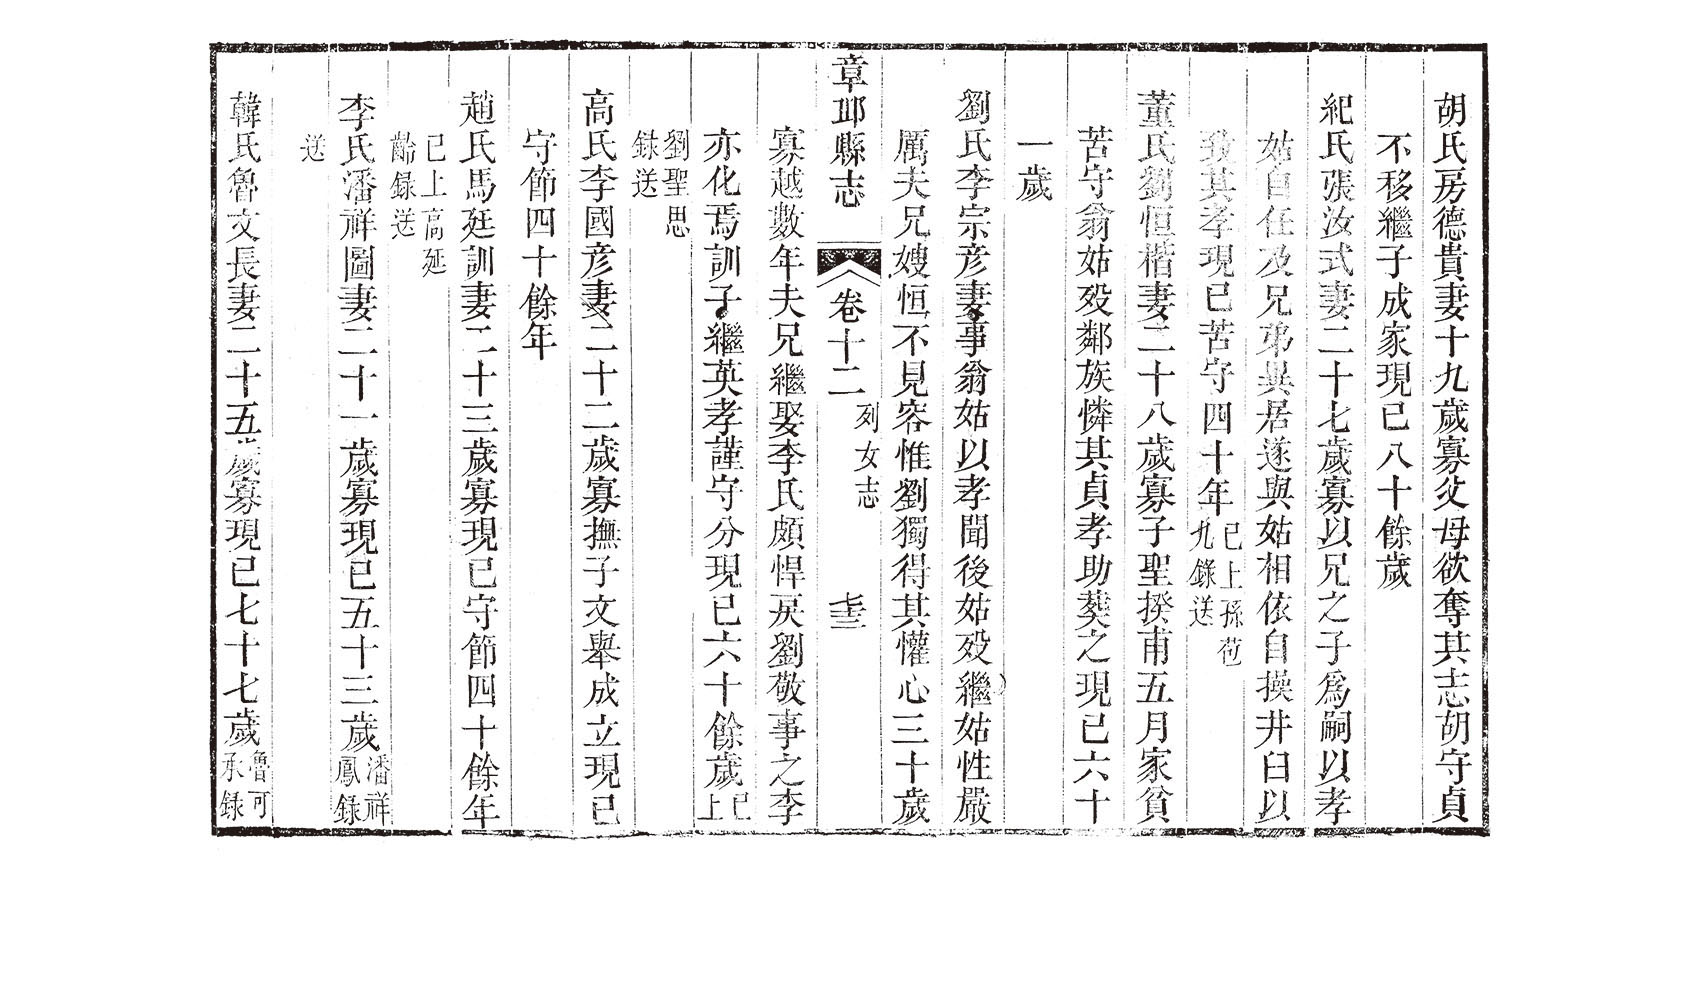 胡氏房德貴妻十九歲寡父母欲奪其志胡守貞
不移繼子成家現已八十餘歲
紀氏張汝式妻二十七歲寡以兄之子爲嗣以孝
姑自任及兄弟異居遂與姑相依自操井臼以
致其孝現已苦守四十年已上孫苞九錄送
董氏劉恒楷妻二十八歲寡子聖揆甫五月家貧
苦守翁姑歿鄰族憐其貞孝助葬之現已六十
一歲
劉氏李宗彥妻事翁姑以孝聞後姑歿繼姑性嚴
厲夫兄嫂恒不見容惟劉獨得其懽心三十歲
寡越數年夫兄繼娶李氏頗悍戾劉敬事之李
亦化焉訓子繼英孝謹守分現已六十餘歲已上
劉聖思錄送
高氏李國彥妻二十二歲寡撫子文舉成立現已
守節四十餘年
趙氏馬廷訓妻二十三歲寡現已守節四十餘年
已上高延齡錄送
李氏潘祥圖妻二十一歲寡現已五十三歲潘祥鳳錄
送
韓氏魯文長妻二十五歲寡現已七十七歲魯可承錄
章邱縣志 卷十二 列女志 七十三